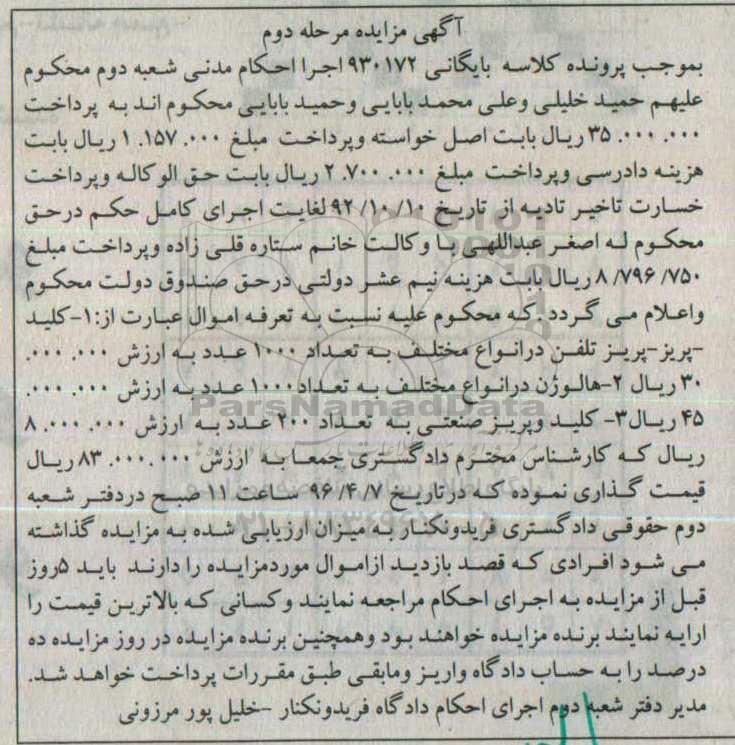 آگهی مزایده مرحله دوم
بموجب پرونده کلاسه بایگانی ۹۳۰۱۷۲ اجرا احکام مدنی شعبه دوم محکوم
علیهم حمید خلیلی وعلی محمد بابایی وحمید بابایی محکوم اند به پرداخت
۳۵.۰۰۰.۰۰۰ ریال بابت اصل خواسته وپرداخت مبلغ ۱.۱۵۷.۰۰۰ ریال بابت
هزینه دادرسی وپرداخت مبلغ ۲.۷۰۰.۰۰۰ ریال بابت حق الوکاله وپرداخت
خسارت تاخیر تادیه از تاریخ ۹۲/۱۰/۱۰ لغایت اجرای کامل حکم درحق
محکوم له اصغر عبداللهی با وکالت خانم ستاره قلی زاده وپرداخت مبلغ
۸/۷۹۶/۷۵۰ ریال بابت هزینه نیم عشر دولتی درحق صندوق دولت محکوم
واعلام می گردد .که محکوم علیه نسبت به تعرفه اموال عبارت از:۱-کلید
-پریز-پریز تلفن درانواع مختلف به تعداد ۱۰۰۰ عدد به ارزش ۰۰۰.۰۰۰.
۳۰ ریال ۲-هالوژن درانواع مختلف به تعداد۱۰۰۰ عدد به ارزش ۰۰۰.۰۰۰.
۴۵ ریال۳- کلید وپریز صنعتی به تعداد ۲۰۰ عدد به ارزش ۸.۰۰۰.۰۰۰
ریال که کارشناس محترم دادگستری جمعا به ارزش ۸۳.۰۰۰.۰۰۰ ریال
قیمت گذاری نموده که درتاریخ ۹۶/۴/۷ ساعت ۱۱ صبح دردفتر شعبه
دوم حقوقی دادگستری فریدونکنار به میزان ارزیابی شده به مزایده گذاشته
می شود افرادی که قصد بازدید ازاموال موردمزایده را دارند باید ۵روز
قبل از مزایده به اجرای احکام مراجعه نمایند وکسانی که بالاترین قیمت را
ارایه نمایند برنده مزایده خواهند بود وهمچنین برنده مزایده در روز مزایده ده
درصد را به حساب دادگاه واریز ومابقی طبق مقررات پرداخت خواهد شد.
مدیر دفتر شعبه دوم اجرای احکام دادگاه فریدونکنار -خلیل پور مرزونی
ParsNamadData